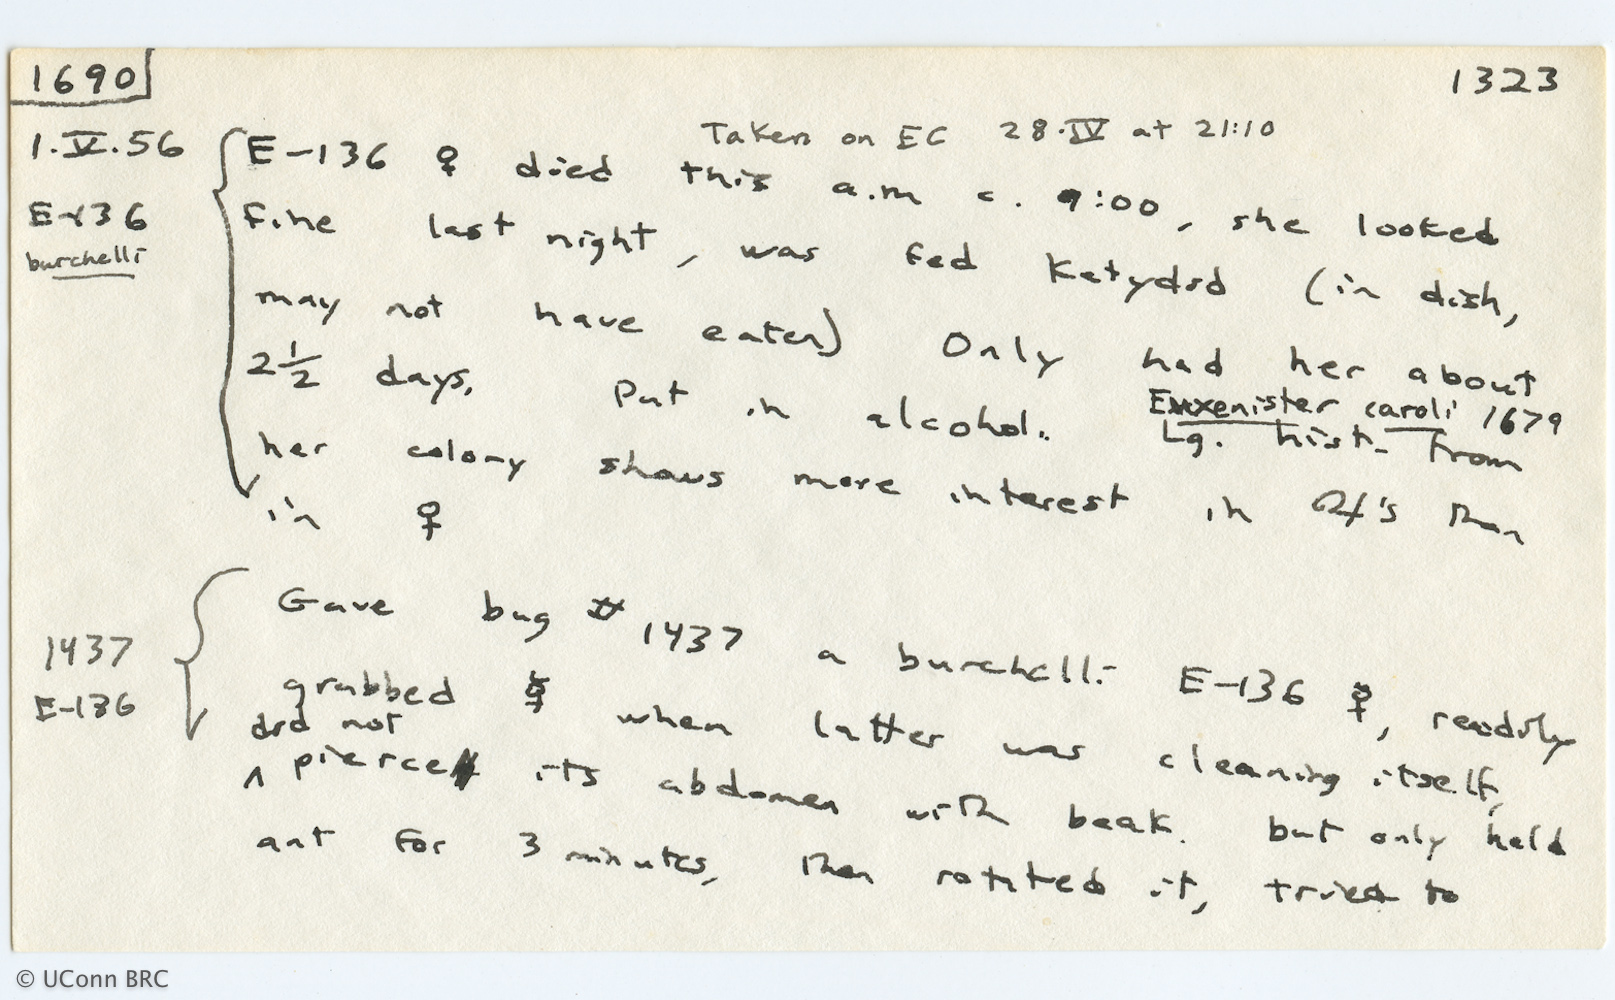 1690
1323
1.V.56
Taken on EC 28.IV at 21:10
E-136 ♀ died this a.m c. 9:00, she looked
E-136
burchelli
fine last night, was fed Katydid (in dish,
may not have eaten) Only had her about
2 1/2 days. Put in alcohol.
Euxenister caroli 1679
Lg. hist. from
her colony shows more interest in 4's than
in ♀
Gave bug # 1437 a burchelli E-136 ☿, readily
1437
E-136
grabbed ☿ when latter was cleaning itself,
did not
^ pierce its abdomen with beak. but only held
ant for 3 minutes, then rotated it, tried to
© UConn BRC